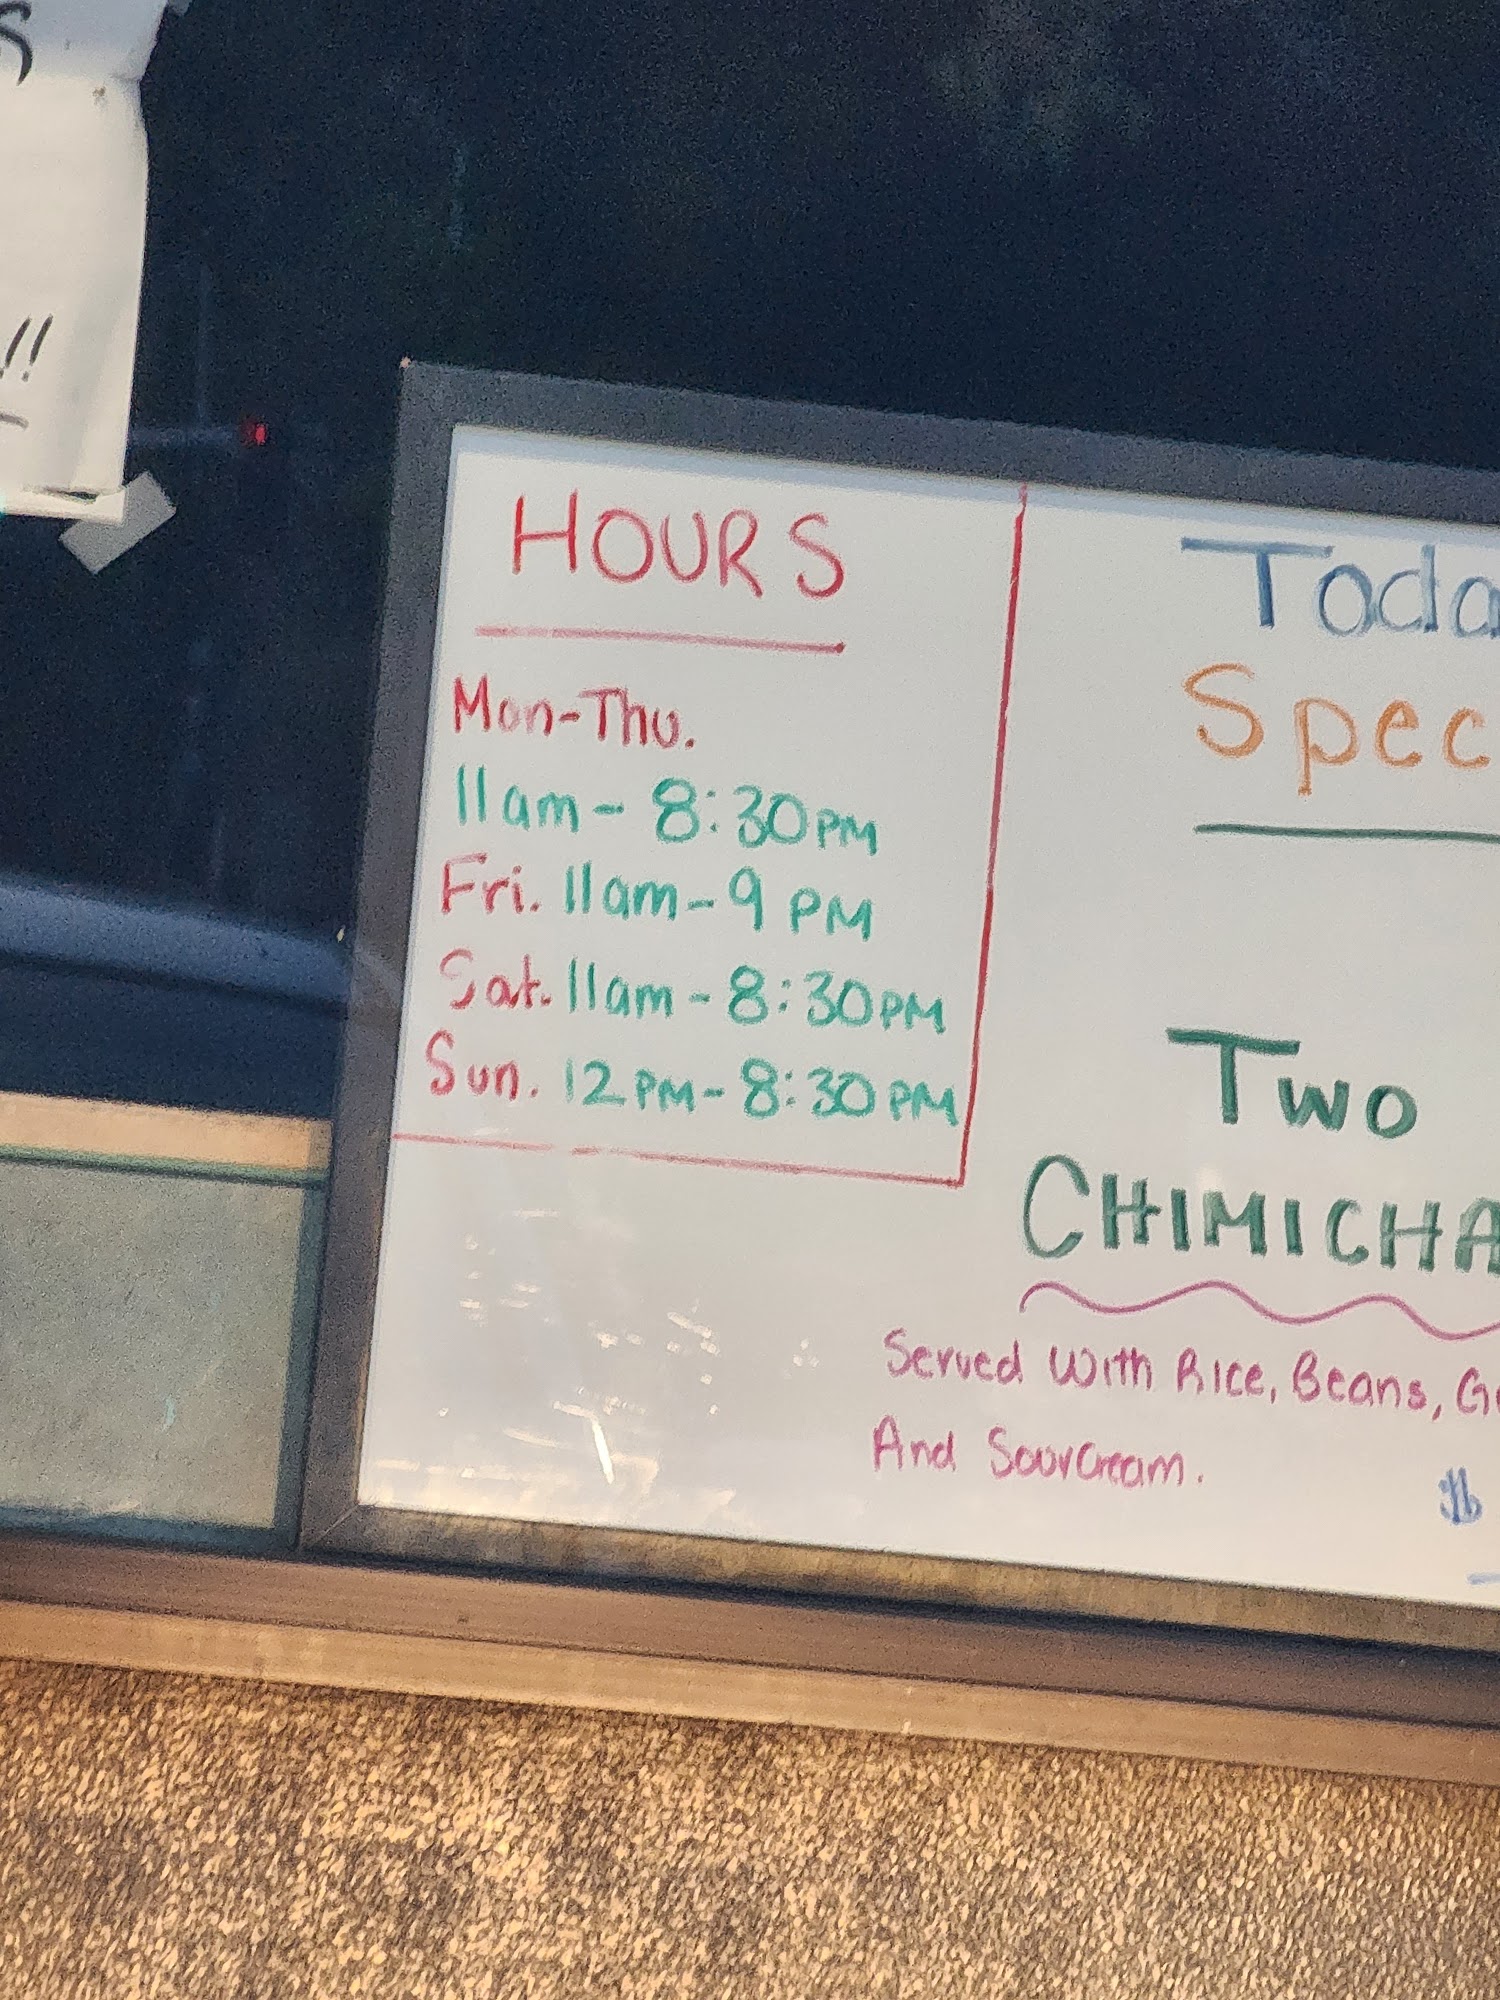 S
!!
HOURS
Mon-Thu.
11am- 8:30PM
Fri. 11am-9 PM
Sat. 11am-8:30PM
Sun. 12PM-8:30PM
Toda
Spec
Two
CHIMICHA
Served With Rice, Beans, G
And Sourcream.
$